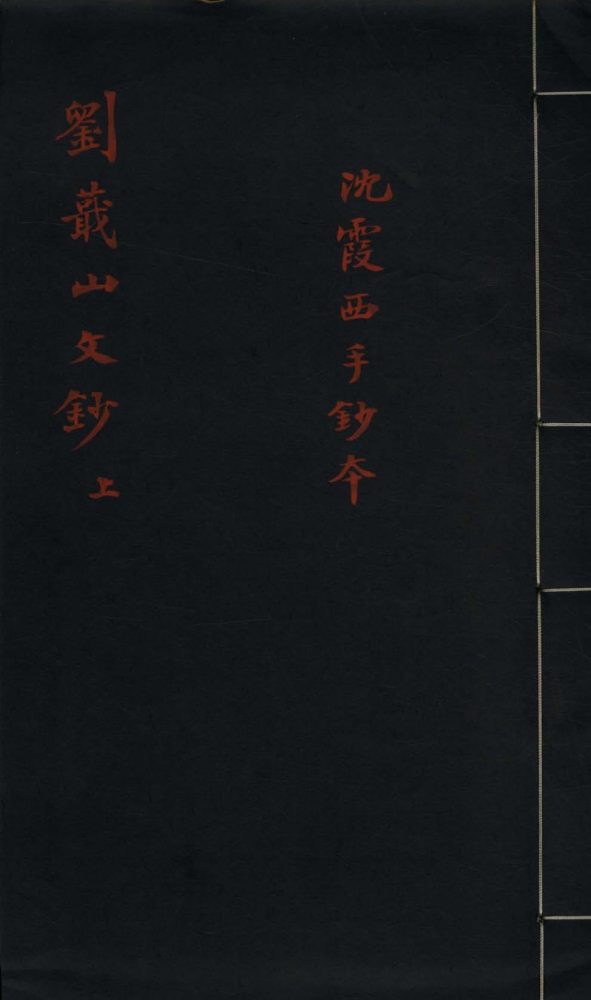 沈霞西手鈔本
劉蕺山文鈔 上